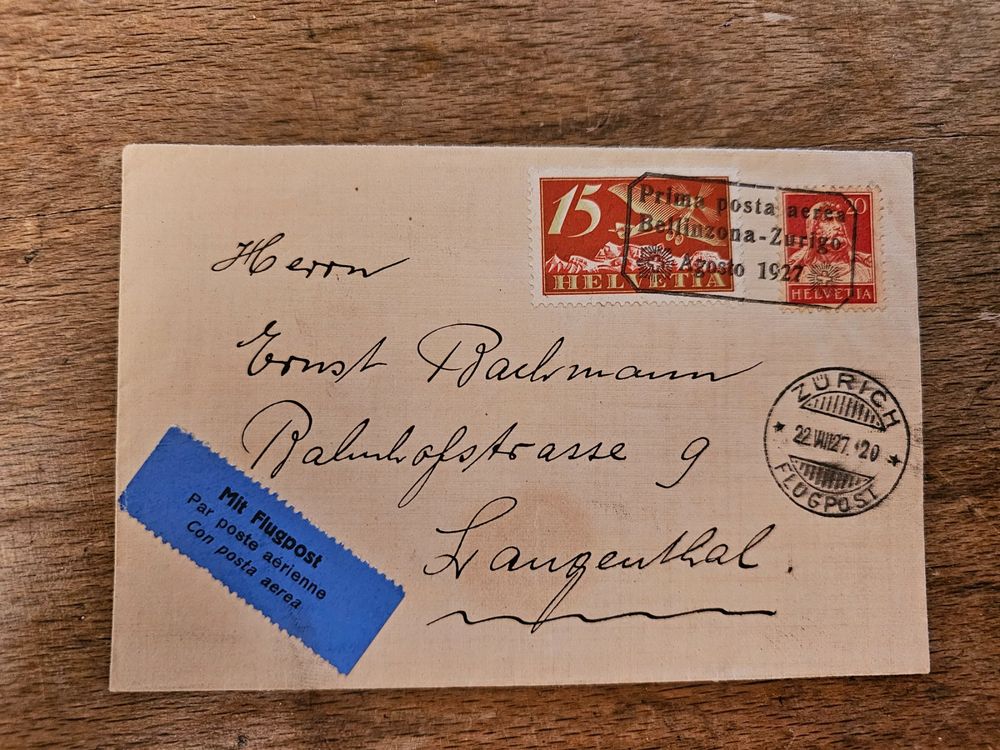 15
HELVETIA
20
HELVETIA
Prima posta aerea
Bellinzona-Zurigo
Agosto 1927
Herrn
Ernst Bachmann
Bahnhofstrasse 9
Langenthal.
ZÜRICH
22.VIII27.
20
FLUGPOST
Mit Flugpost
Par poste aérienne
Con posta aerea